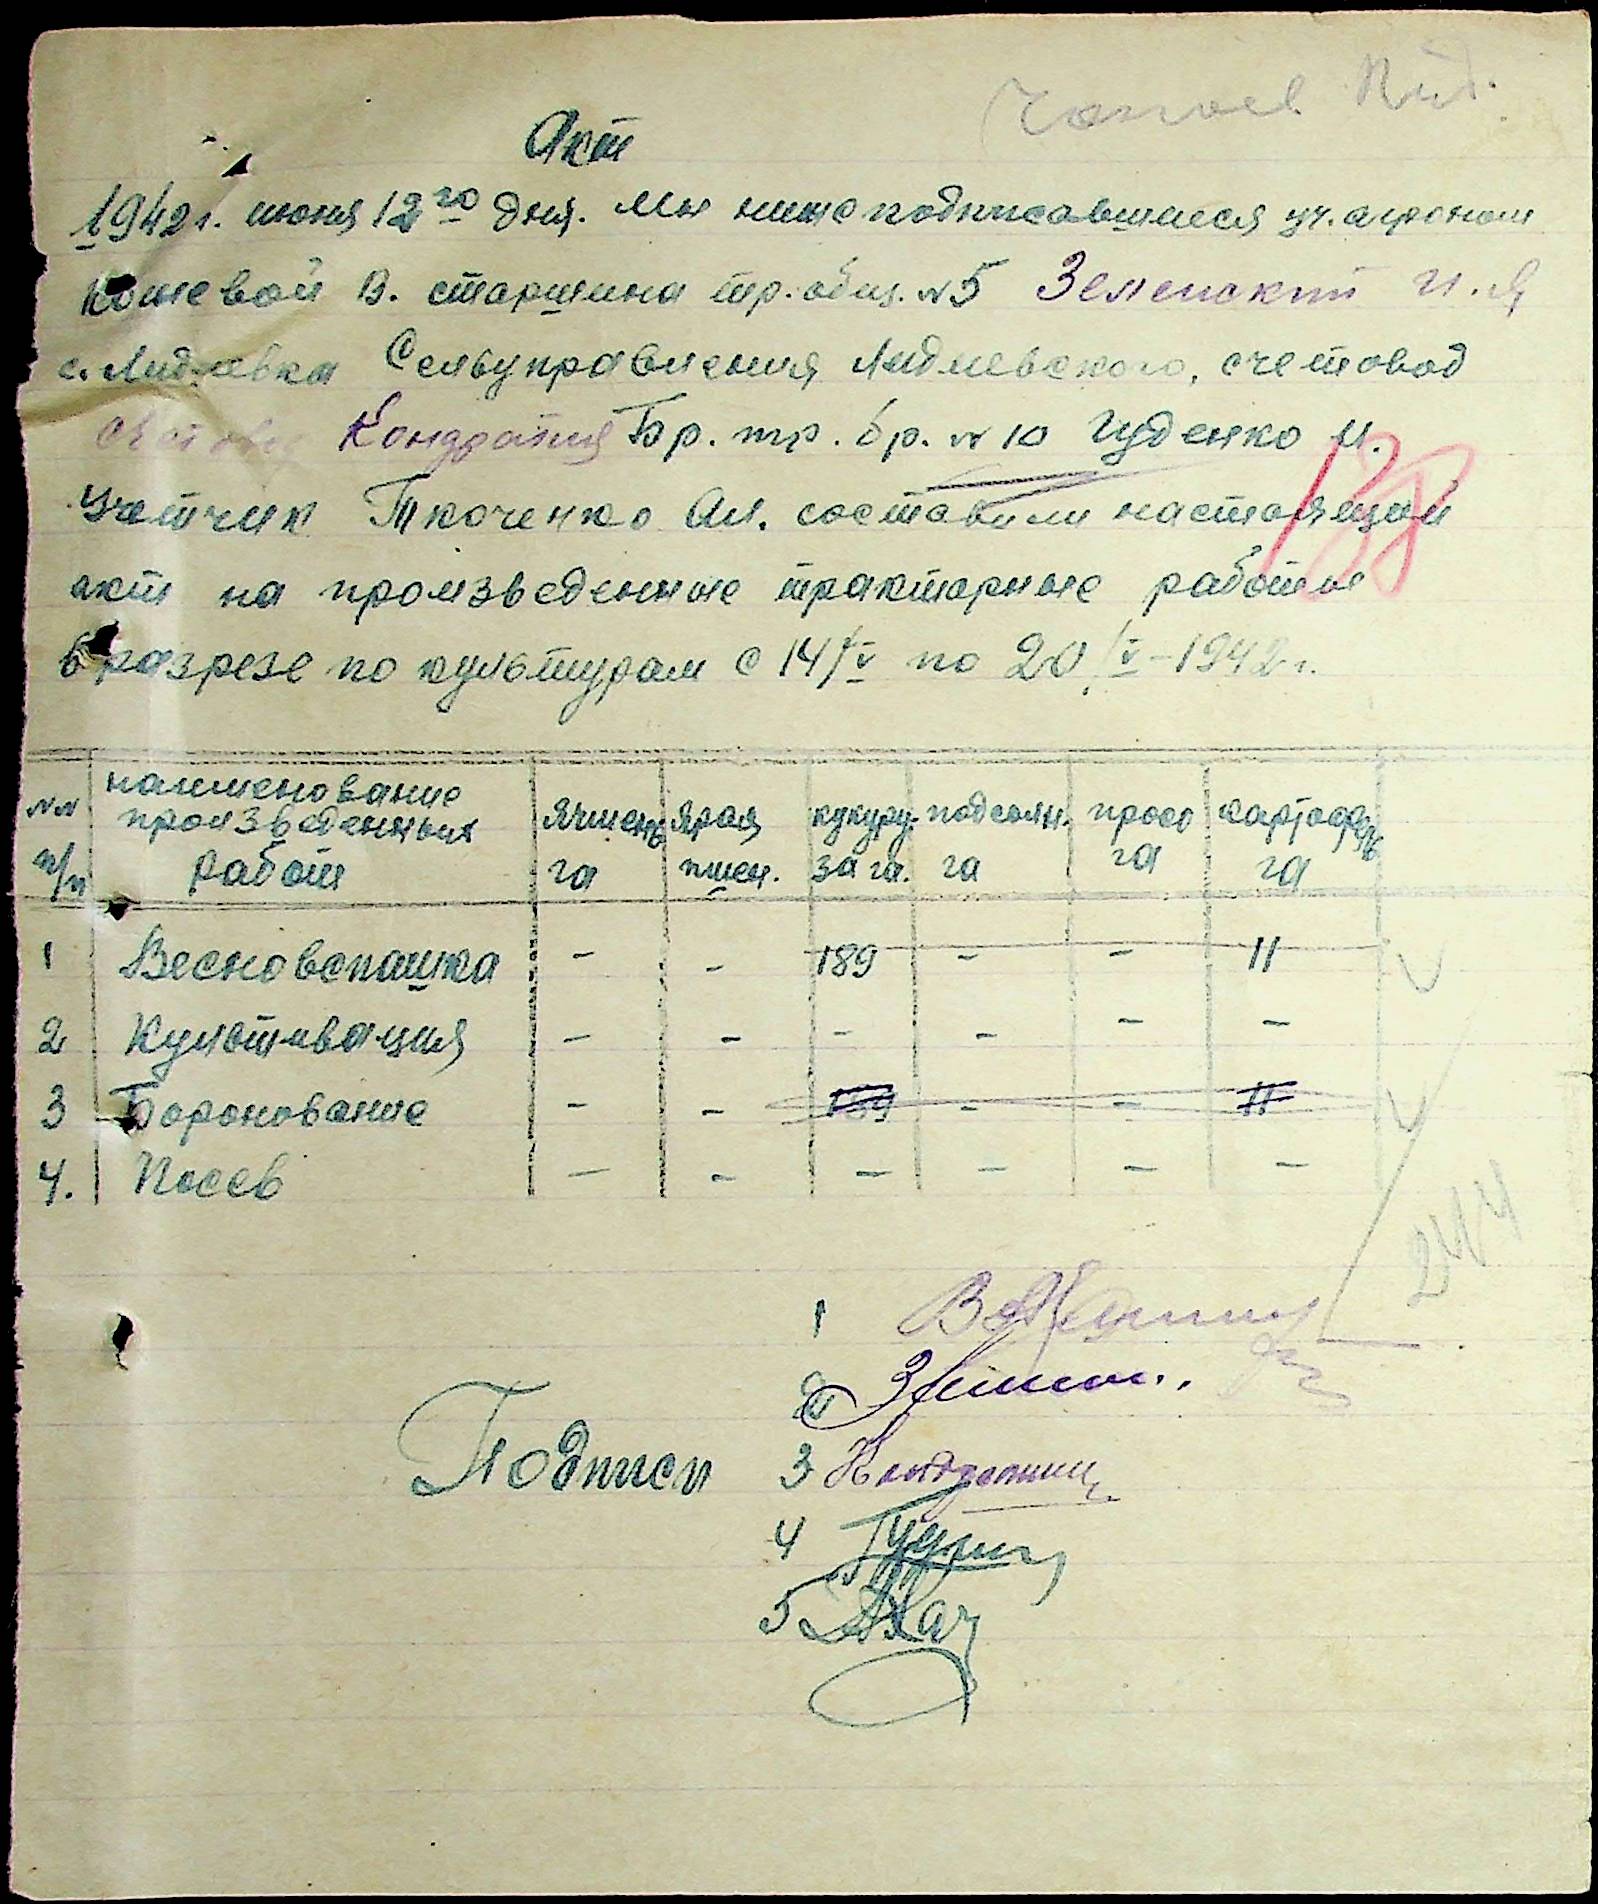 Акт
1942 г. июня 12го дня. Мы нижеподписавшиеся уч. агроном
Кошевой В. старшина тр. общ. №5 Зеленский И. Я
с. Лидиевка Сельуправления Лидиевского, счетовод
Кондратия Бр. тр. бр. № 10 Гуденко И.
Учетчик Ткоченко Ал. составили настоящий
138
акт на произведенные тракторные работы
в разрезе по культурам с 14/V по 20/V-1942 г.
№№ п/п наименование произведенных работ ячмень га ярая пшен. кукуруза га. подсолн. га просо га картофель га
1 Весновспашка - - 189 - - 11
2 Культивация - - - - - -
3 Боронование - - 189 - - 11
4. Посев - - - - - -
244
Подписи
1
2
3
4
5 Ткач